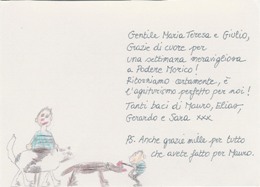 Gentile Maria Teresa e Giulio,
Grazie di cuore per
una settimana meravigliosa
a Podere Morico!
Ritorniamo certamente, è
l'agriturismo perfetto per noi!
Tanti baci di Mauro, Elias,
Gerardo e Sara xxx
PS. Anche grazie mille per tutto
che avete fatto per Mauro.